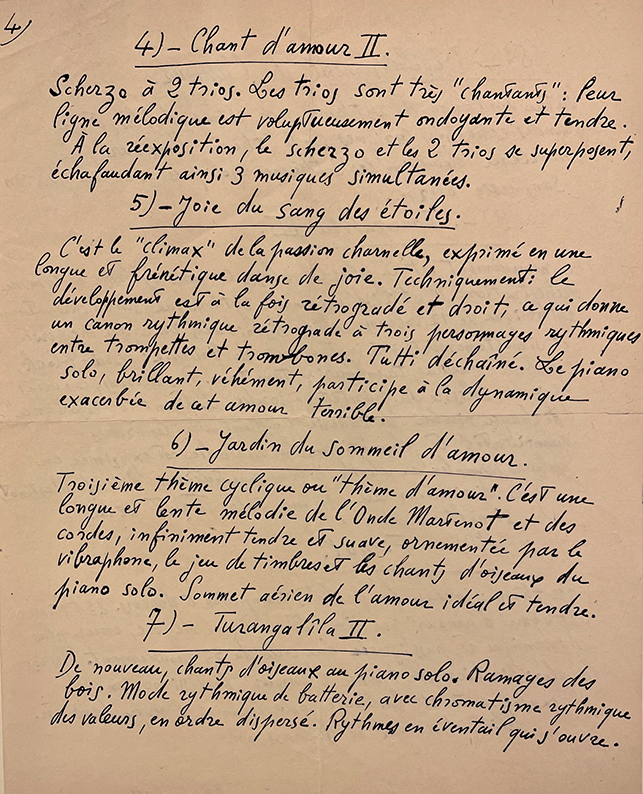 4)
4) - Chant d'amour II.
Scherzo à 2 trios. Les trios sont très "chantants": leur
ligne mélodique est voluptueusement ondoyante et tendre.
À la réexposition, le scherzo et les 2 trios se superposent,
échafaudant ainsi 3 musiques simultanées.
5) - Joie du sang des étoiles.
C'est le "climax" de la passion charnelle, exprimé en une
longue et frénétique danse de joie. Techniquement: le
développement est à la fois rétrogradé et droit, ce qui donne
un canon rythmique rétrograde à trois personnages rythmiques
entre trompettes et trombones. Tutti déchaîné. Le piano
solo, brillant, véhément, participe à la dynamique
exacerbée de cet amour terrible.
6) - Jardin du sommeil d'amour.
Troisième thème cyclique ou "thème d'amour". C'est une
longue et lente mélodie de l'Onde Martenot et des
cordes, infiniment tendre et suave, ornementée par le
vibraphone, le jeu de timbres et les chants d'oiseaux du
piano solo. Sommet aérien de l'amour idéal et tendre.
7) - Turangalîla II.
De nouveau, chants d'oiseaux au piano solo. Ramages des
bois. Mode rythmique de batterie, avec chromatisme rythmique
des valeurs, en ordre dispersé. Rythmes en éventail qui s'ouvre.